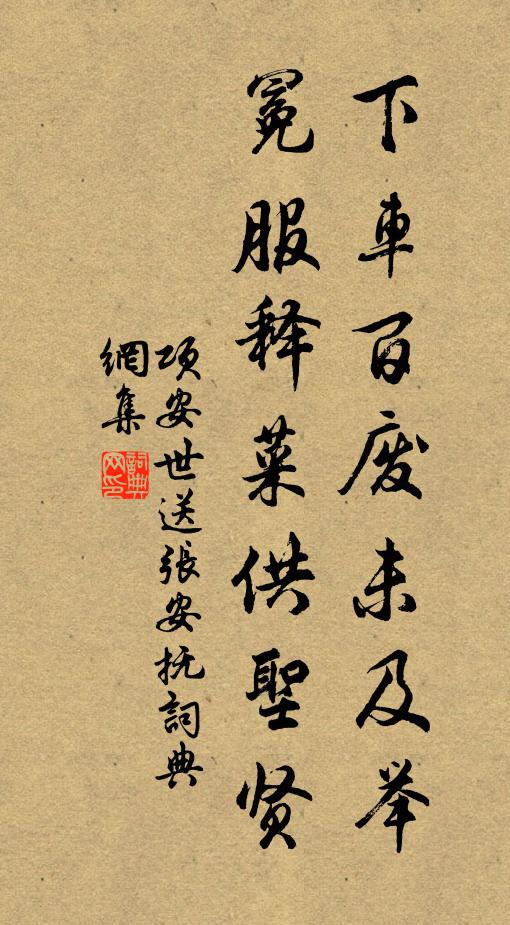 下車百废未及举
冕服释菜供聖贤
项安世送張安抚詞典
網集
詞典网印